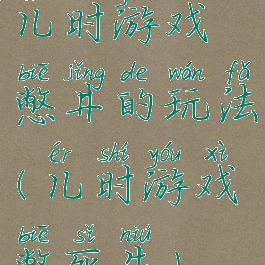 儿时游戏
biē jǐng de wán fǎ
憋井的玩法
ér shí yóu xì
(儿时游戏
biē sǐ niú
憋死牛)